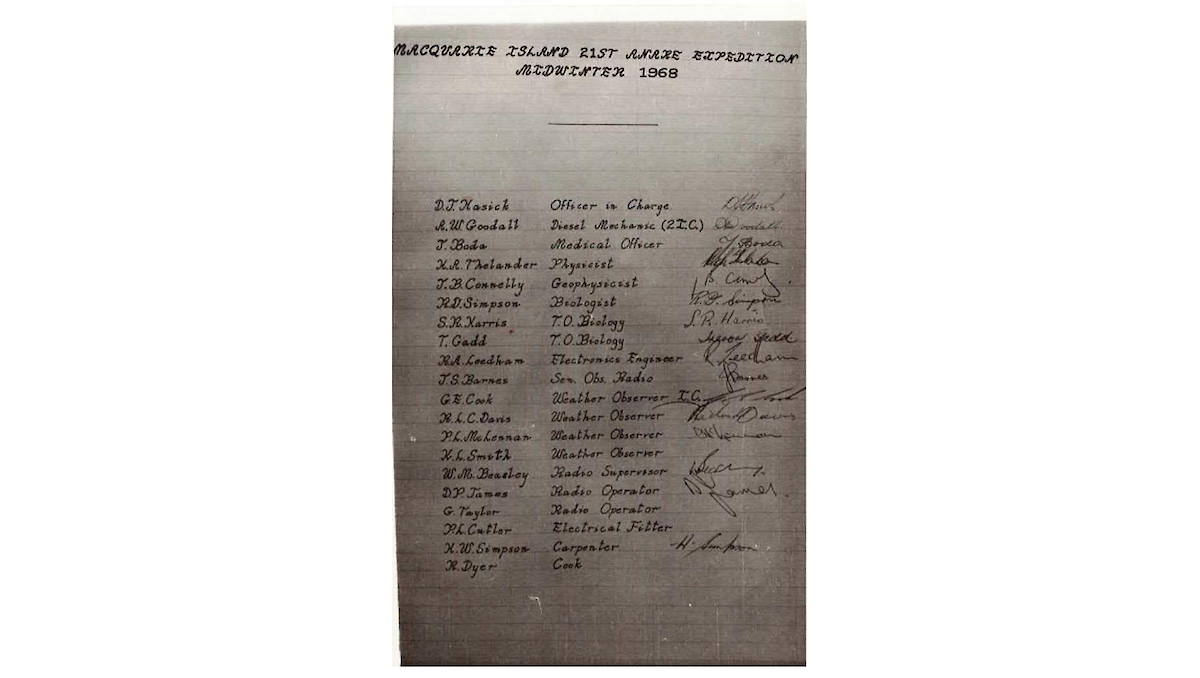 MACQUARIE ISLAND 21ST ANARE EXPEDITION
MIDWINTER 1968
D.J.Hasick Officer in Charge
A.W.Goodall Diesel Mechanic (2I.C.) Goodall
J.Boda Medical Officer J Boda
Thelander Physicist
J.B.Connelly Geophysicist
R.D.Simpson Biologist R.D. Simpson
S.R.Harris T.O.Biology S.R. Harris
T.Gadd T.O.Biology Gadd
R.A.Leedham Electronics Engineer R. Leedham
J.S.Barnes Sen. Obs. Radio JBarnes
G.E.Cook Weather Observer I.C. Cook
R.L.C.Davis Weather Observer Richard Davis
P.L.McLennan Weather Observer
Smith Weather Observer
W.M.Beasley Radio Supervisor
D.P.James Radio Operator D James.
G.Taylor Radio Operator
P.L.Cutler Electrical Fitter
H.W.Simpson Carpenter H. Simpson
R.Dyer Cook